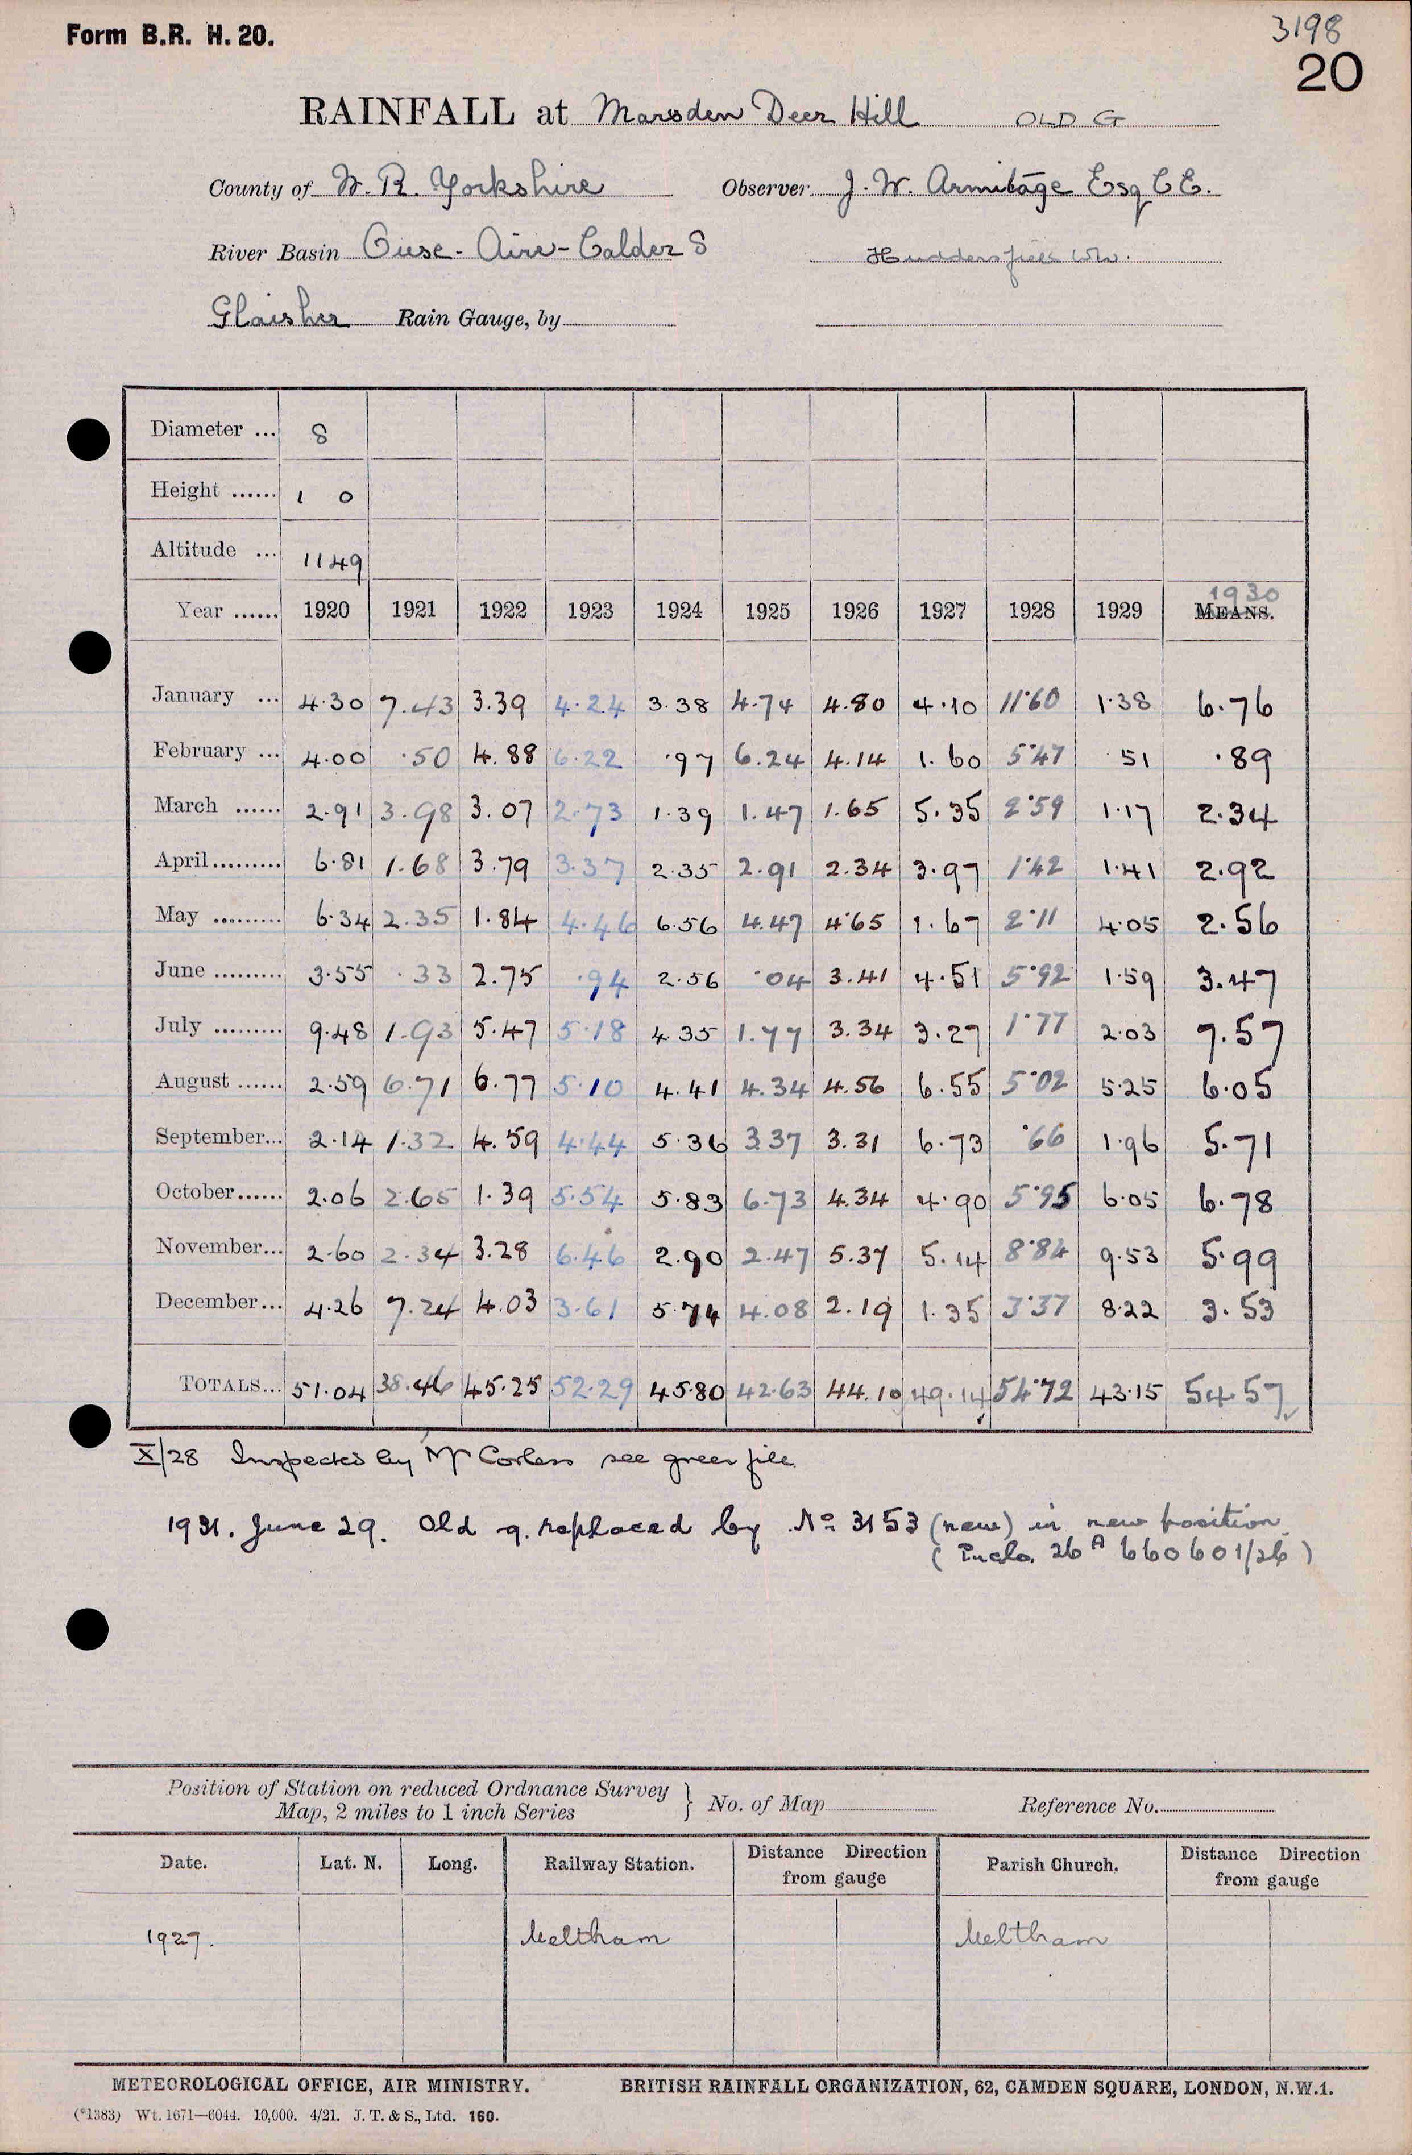 Form B.R. H. 20.
3198
20
RAINFALL at Marsden Deer Hill OLD G
County of W. R. Yorkshire Observer J. W. Armitage Esq C E.
River Basin Ouse - Aire - Calder S Huddersfield WW.
Glaisher Rain Gauge, by
Diameter ... 8
Height ...... 1 0
Altitude ... 1149
1930
Year ...... 1920 1921 1922 1923 1924 1925 1926 1927 1928 1929 MEANS.
January ... 4.30 7.43 3.39 4.24 3.38 4.74 4.80 4.10 11.60 1.38 6.76
February ... 4.00 .50 4.88 6.22 .97 6.24 4.14 1.60 5.47 51 .89
March ...... 2.91 3.98 3.07 2.73 1.39 1.47 1.65 5.35 2.59 1.17 2.34
April ......... 6.81 1.68 3.79 3.37 2.35 2.91 2.34 3.97 1.42 1.41 2.92
May ......... 6.34 2.35 1.84 4.46 6.56 4.47 4.65 1.67 2.11 4.05 2.56
June ......... 3.55 .33 2.75 .94 2.56 .04 3.41 4.51 5.92 1.59 3.47
July ......... 9.48 1.93 5.47 5.18 4.35 1.77 3.34 3.27 1.77 2.03 7.57
August ...... 2.59 6.71 6.77 5.10 4.41 4.34 4.56 6.55 5.02 5.25 6.05
September... 2.14 1.32 4.59 4.44 5.36 3.37 3.31 6.73 .66 1.96 5.71
October...... 2.06 2.65 1.39 5.54 5.83 6.73 4.34 4.90 5.95 6.05 6.78
November... 2.60 2.34 3.28 6.46 2.90 2.47 5.37 5.14 8.84 9.53 5.99
December... 4.26 7.24 4.03 3.61 5.74 4.08 2.19 1.35 3.37 8.22 3.53
TOTALS... 51.04 38.46 45.25 52.29 45.80 42.63 44.10 49.14 54.72 43.15 54.57
X/28 Inspected by Mr Corless see green file
1931. June 29. Old g. replaced by No 3153 (new) in new position
(Enclo. 26A 660601/26)
Position of Station on reduced Ordnance Survey
Map, 2 miles to 1 inch Series } No. of Map Reference No.
Date. Lat. N. Long. Railway Station. Distance Direction from gauge Parish Church. Distance Direction from gauge
1927. Meltham Meltham
METEOROLOGICAL OFFICE, AIR MINISTRY. BRITISH RAINFALL ORGANIZATION, 62, CAMDEN SQUARE, LONDON, N.W.1.
(*1383) Wt. 1671—6044. 10,000. 4/21. J. T. & S., Ltd. 160.